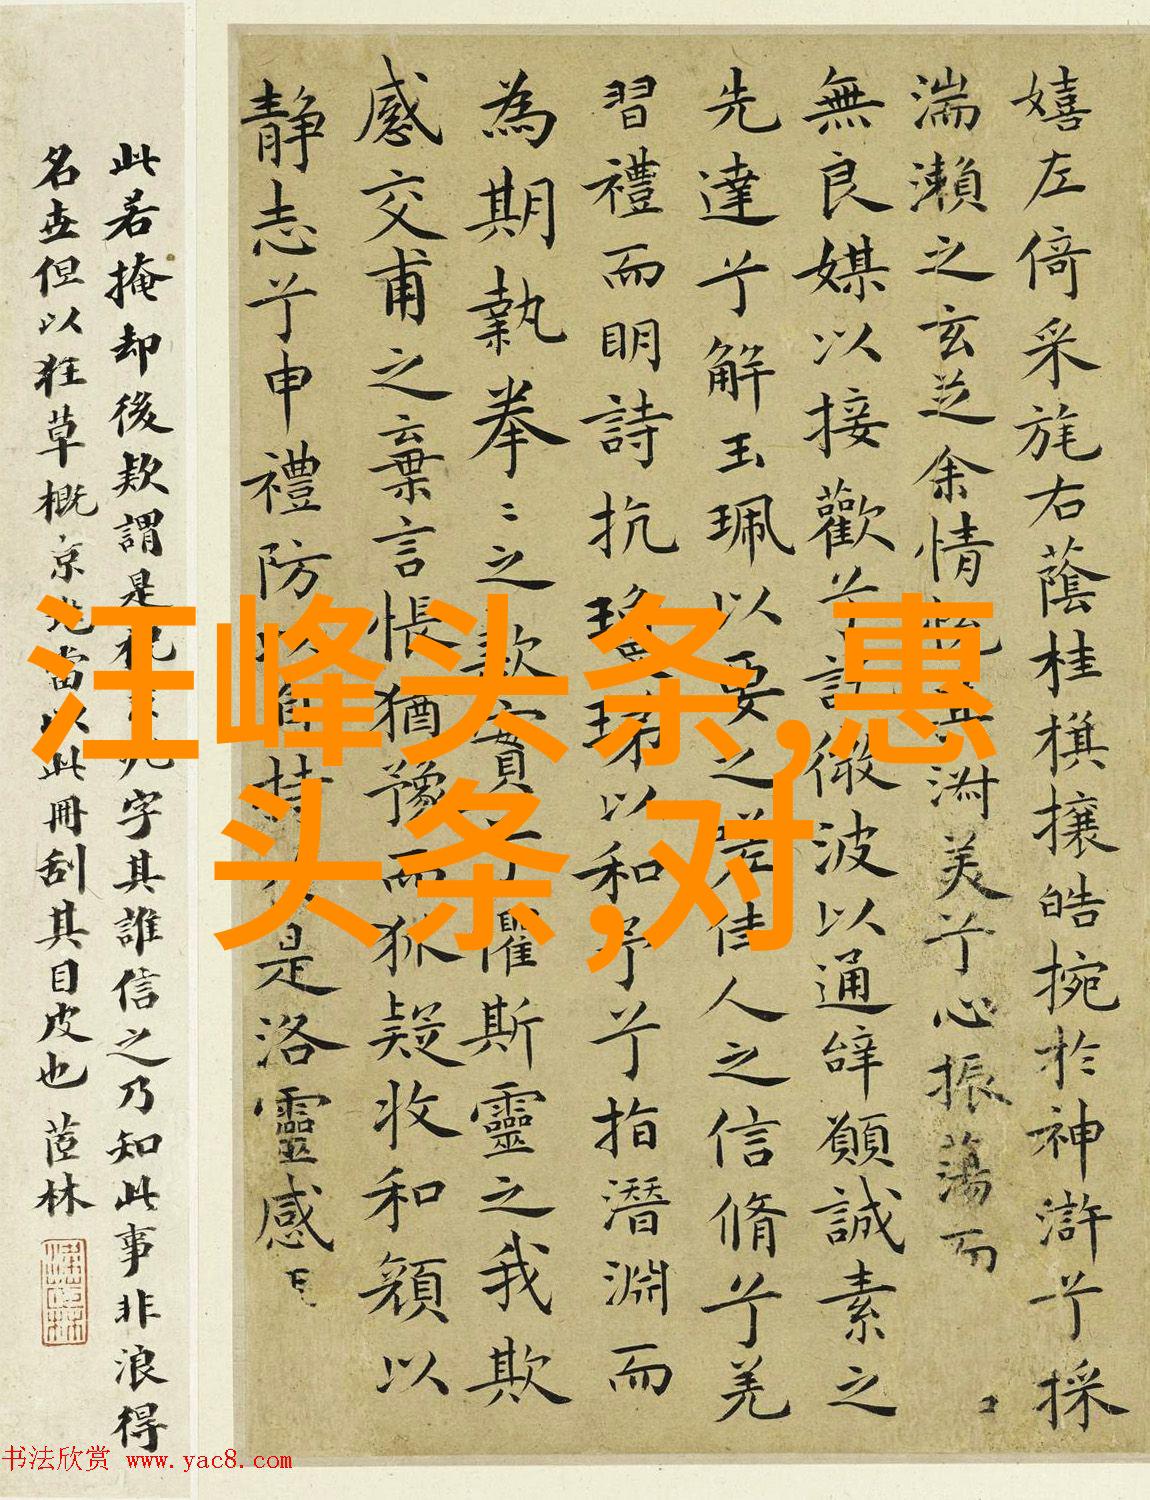 嬉左倚采旄右蔭桂棋攘皓捥於神滸兮採
湍瀨之玄芝余情悦其淑美兮心振蕩而
無良媒以接歡兮託微波以通辭願誠素之
先達兮解玉珮以要之嗟佳人之信脩兮羌
習禮而明詩抗瓊珶以和予兮指潛淵而
為期執拳〻之款實兮懼斯靈之我欺
感交甫之棄言悵猶豫而狐疑收和顏以
靜志兮申禮防以自持於是洛靈感
此若掩却後欵謂是祝京兆字其誰信之乃知此事非浪得
名世但以狂草概京兆當以此冊刮其目皮也 茝林
汪峰头条,惠
头条,对
书法欣赏 www.yac8.com